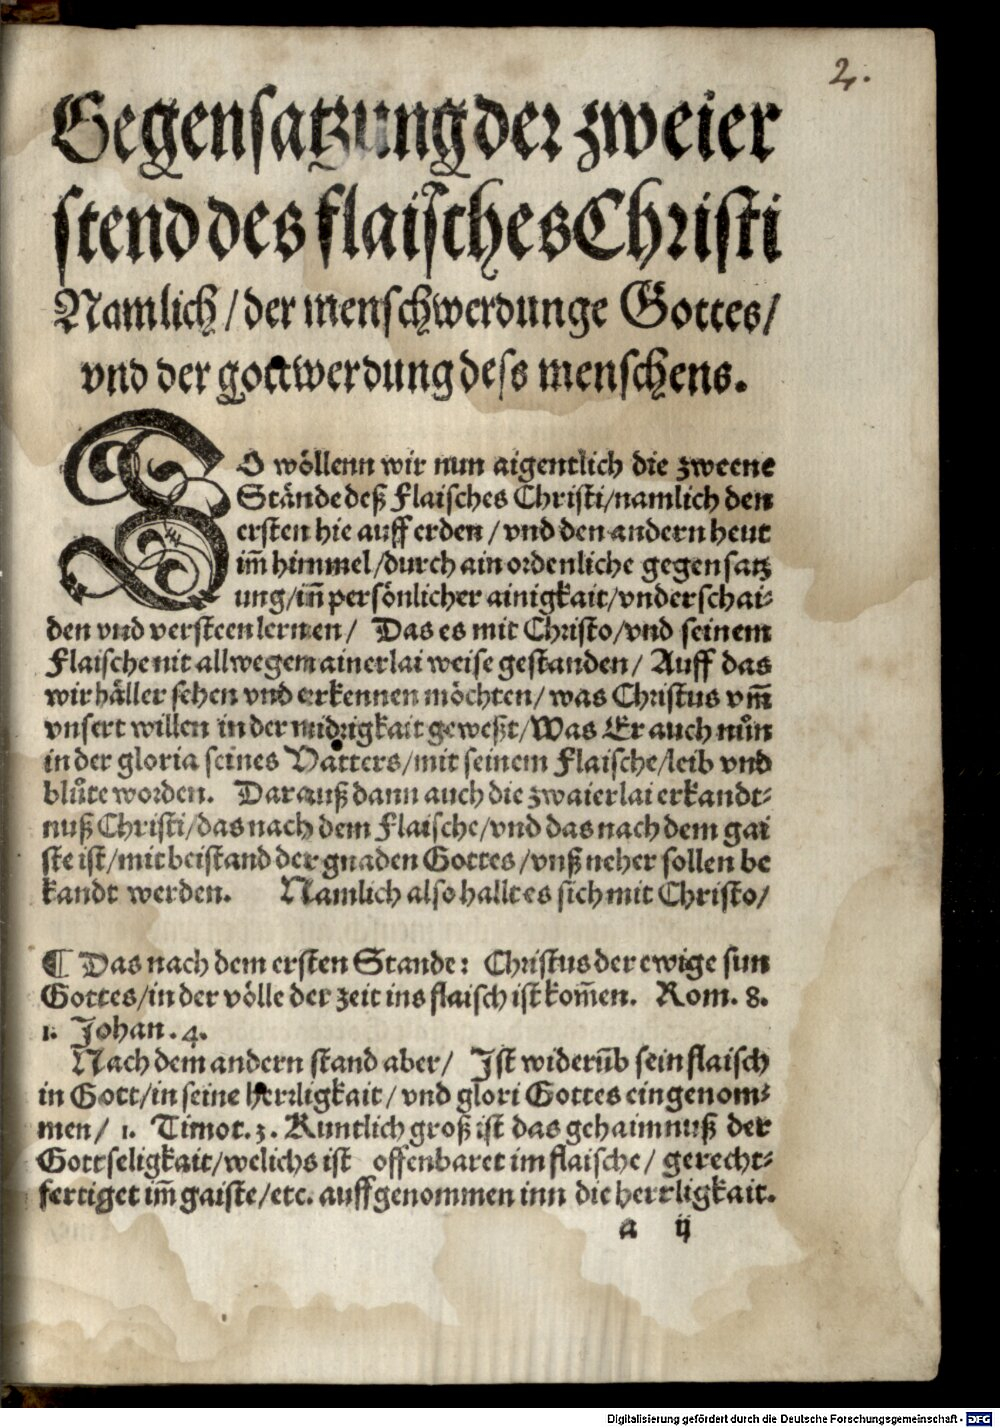 2.
Gegensatzung der zweier
stend des flaisches Christi
Namlich / der menschwerdunge Gottes /
vnd der gottwerdung dess menschens.
SO wöllenn wir nun aigentlich die zweene
Stände deß Flaisches Christi / namlich den
ersten hie auff erden / vnd den andern heut
im̃ himmel / durch ain ordenliche gegensatz
ung / iñ persönlicher ainigkait / vnderschai-
den vnd versteen lernen / Das es mit Christo / vnd seinem
Flaische nit allwegem ainerlai weise gestanden / Auff das
wir häller sehen vnd erkennen möchten / was Christus vm̃
vnsert willen in der nidrigkait geweßt / Was Er auch nůn
in der gloria seines Vatters / mit seinem Flaische / leib vnd
blůte worden. Darauß dann auch die zwaierlai erkandt-
nuß Christi / das nach dem Flaische / vnd das nach dem gai
ste ist / mit beistand der gnaden Gottes / vnß neher sollen be
kandt werden. Namlich also hallt es sich mit Christo /
¶ Das nach dem ersten Stande: Christus der ewige sun
Gottes / in der völle der zeit ins flaisch ist kom̃en. Rom. 8.
1. Johan. 4.
Nach dem andern stand aber / Ist widerüb sein flaisch
in Gott / in seine herrligkait / vnd glori Gottes eingenom-
men / 1. Timot. 3. Kuntlich groß ist das gehaimnuß der
Gottseligkait / welichs ist offenbaret im flaische / gerecht-
fertiget im̃ gaiste / etc. auffgenommen inn die herrligkait.
a ij
Digitalisierung gefördert durch die Deutsche Forschungsgemeinschaft - DFG